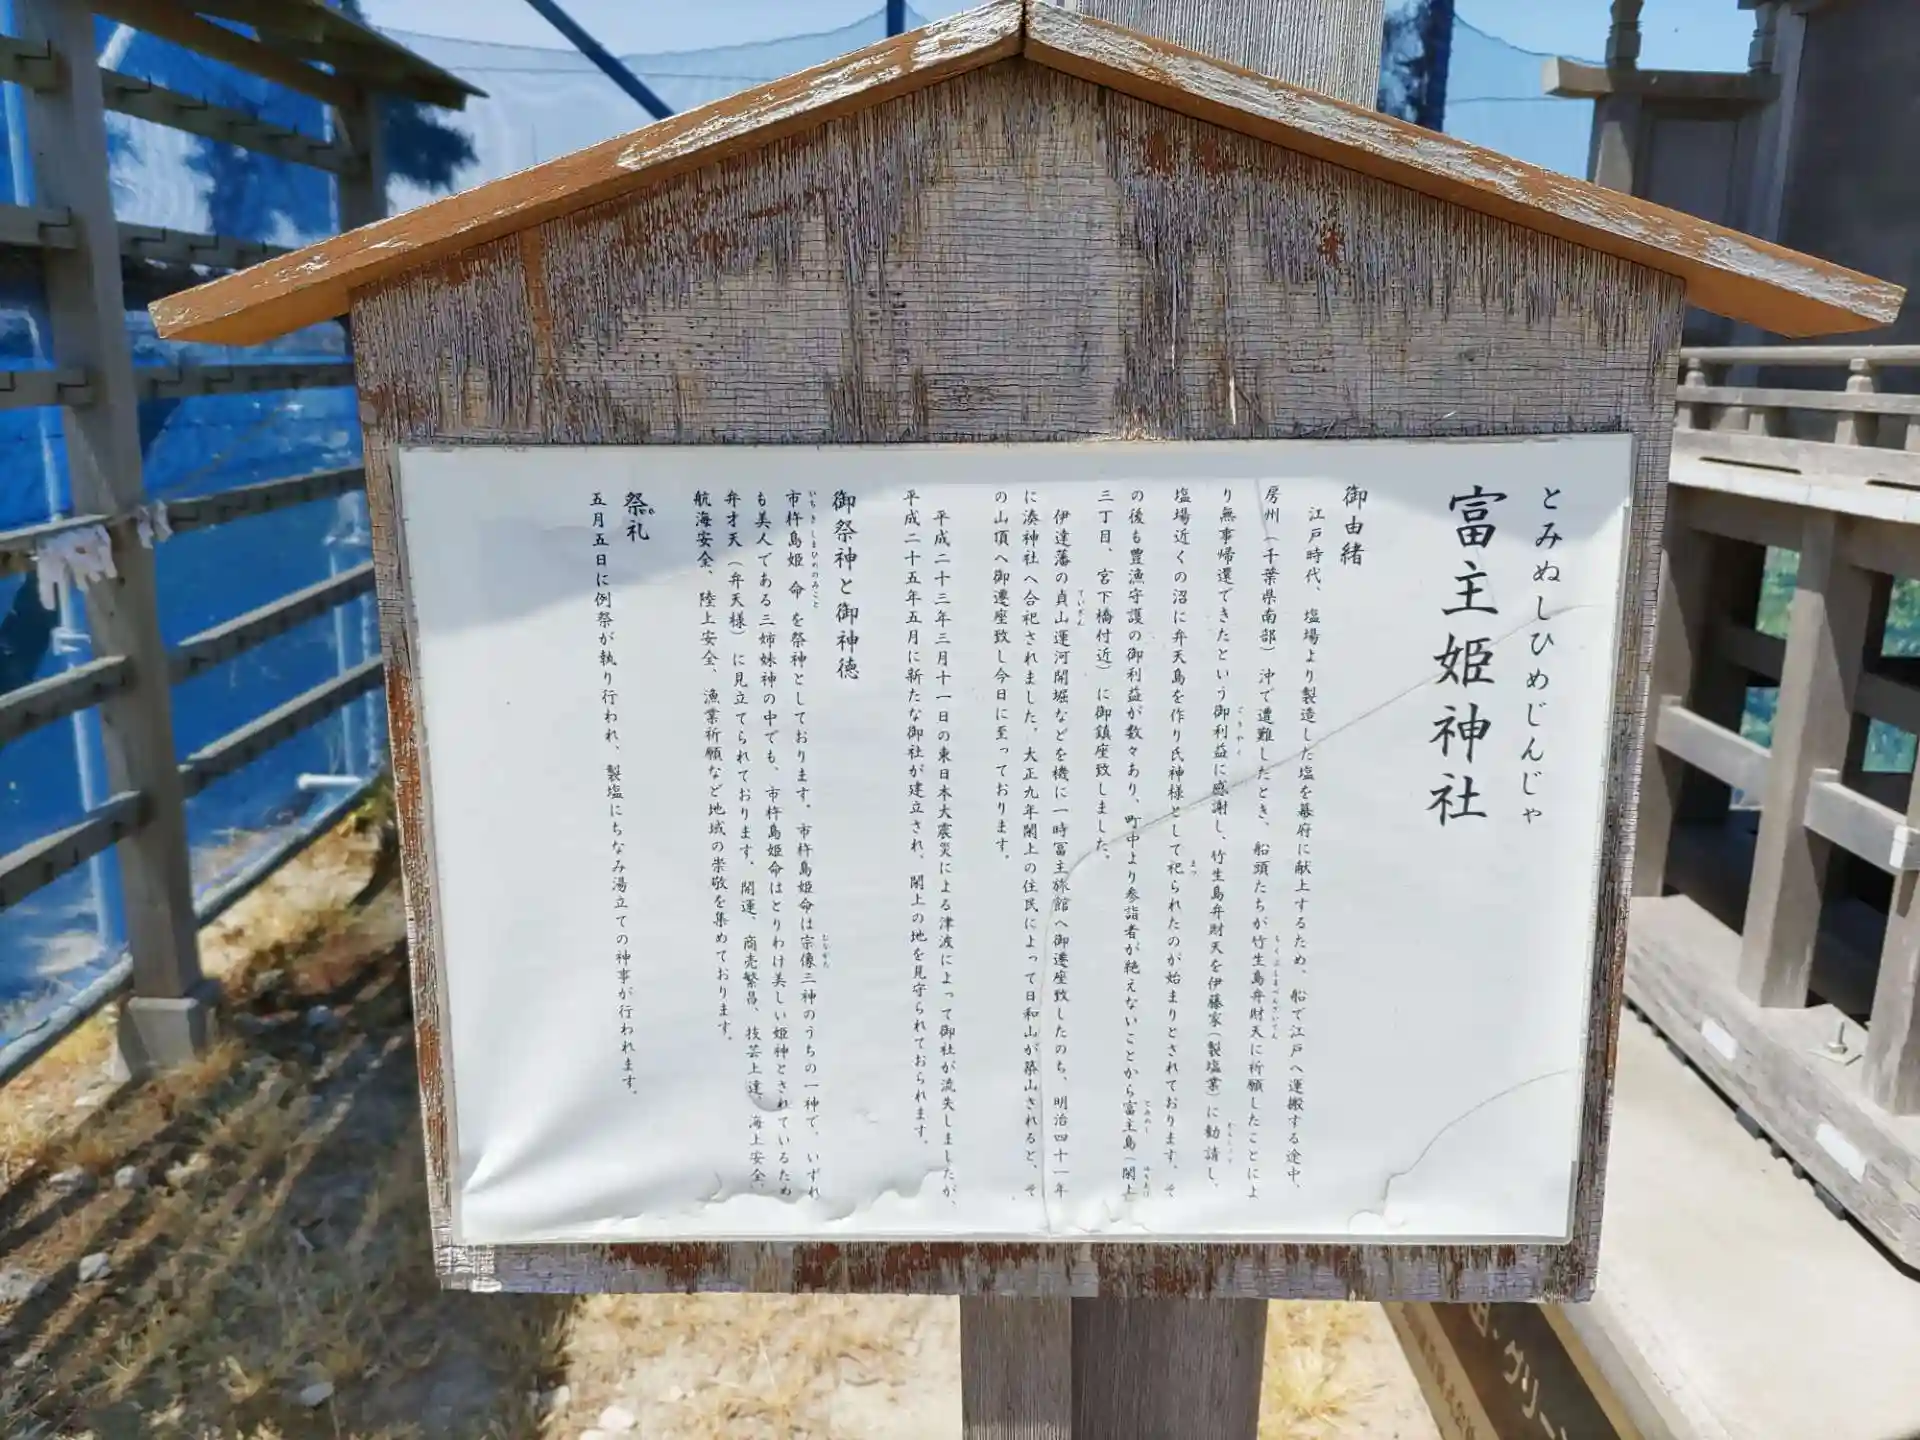 とみぬしひめじんじゃ
富主姫神社
御由緒
江戸時代、塩場より製造した塩を幕府に献上するため、船で江戸へ運搬する途中、
房州（千葉県南部）沖で遭難したとき、船頭たちが竹生島弁財天に祈願したことによ
ちくぶしまべんざいてん
り無事帰還できたという御利益に感謝し、竹生島弁財天を伊藤家（製塩業）に勧請し、
ごりやく
かんじょう
塩場近くの沼に弁天島を作り氏神様として祀られたのが始まりとされております。そ
まつ
の後も豊漁守護の御利益が数々あり、町中より参詣者が絶えないことから富主島（閖上
とみぬし
ゆりあげ
三丁目、宮下橋付近）に御鎮座致しました。
伊達藩の貞山運河開堀などを機に一時冨主旅館へ御遷座致したのち、明治四十一年
ていざん
に湊神社へ合祀されました。大正九年閖上の住民によって日和山が築山されると、そ
の山頂へ御遷座致し今日に至っております。
平成二十三年三月十一日の東日本大震災による津波によって御社が流失しましたが、
平成二十五年五月に新たな御社が建立され、閖上の地を見守られておられます。
御祭神と御神徳
いちきしまひめのみこと
市杵島姫命を祭神としております。市杵島姫命は宗像三神のうちの一神で、いずれ
むなかた
も美人である三姉妹神の中でも、市杵島姫命はとりわけ美しい姫神とされているため
弁才天（弁天様）に見立てられております。開運、商売繁昌、技芸上達、海上安全、
航海安全、陸上安全、漁業祈願など地域の崇敬を集めております。
祭礼
五月五日に例祭が執り行われ、製塩にちなみ湯立ての神事が行われます。
グリー